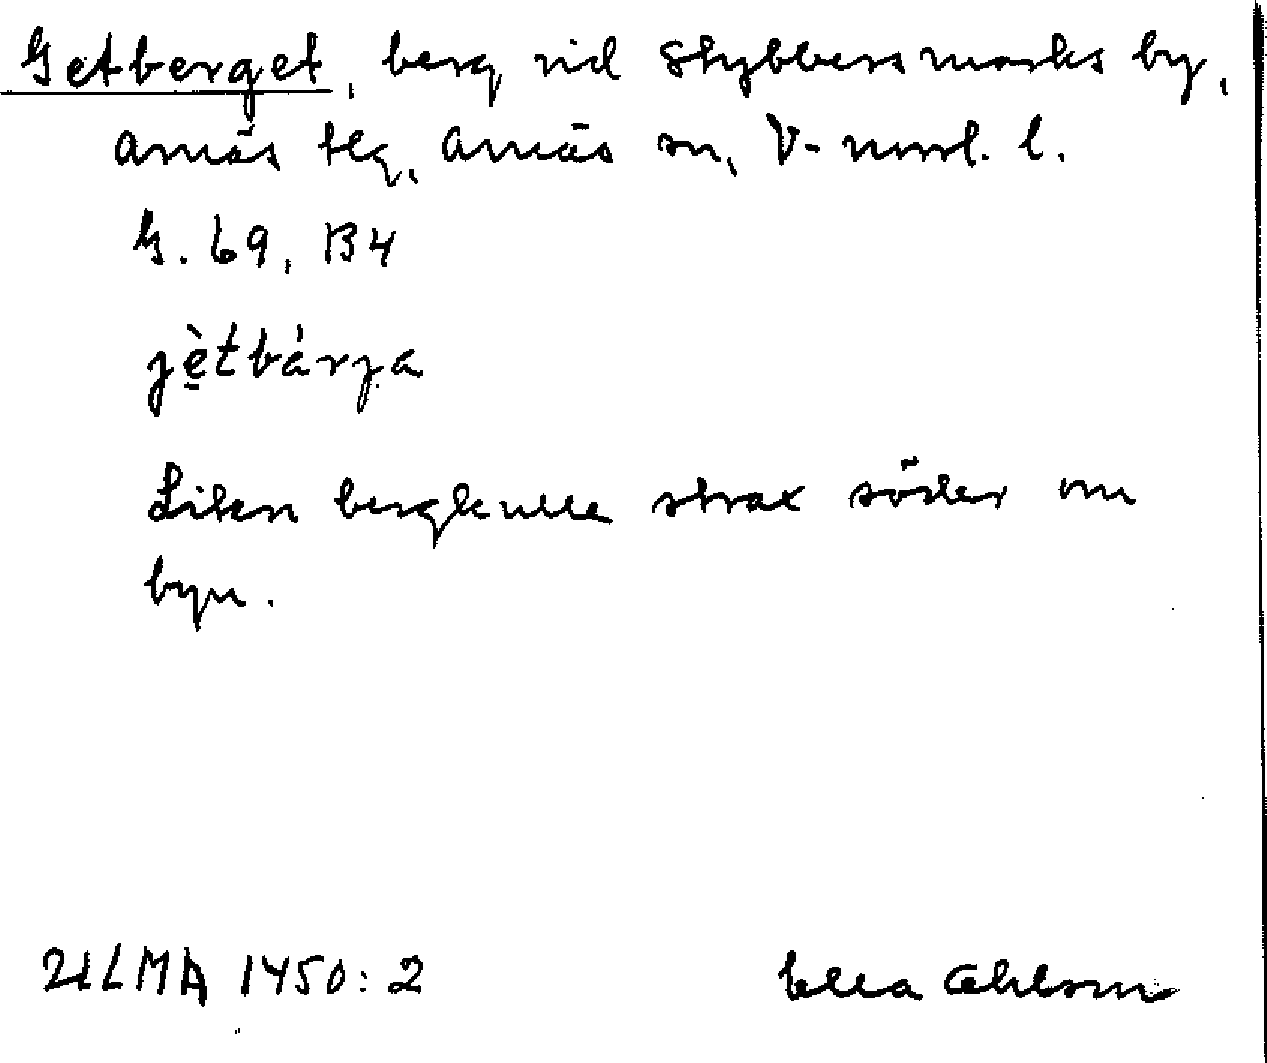 Getberget, berg vid Stybbersmarks by,
Arnäs tlg, Arnäs sn, V-norrl. l.
G. 69, B4
jè̱tbárja
Liten bergkulle strax söder om
byn.
ULMA 1450:2 Ella Ohlson